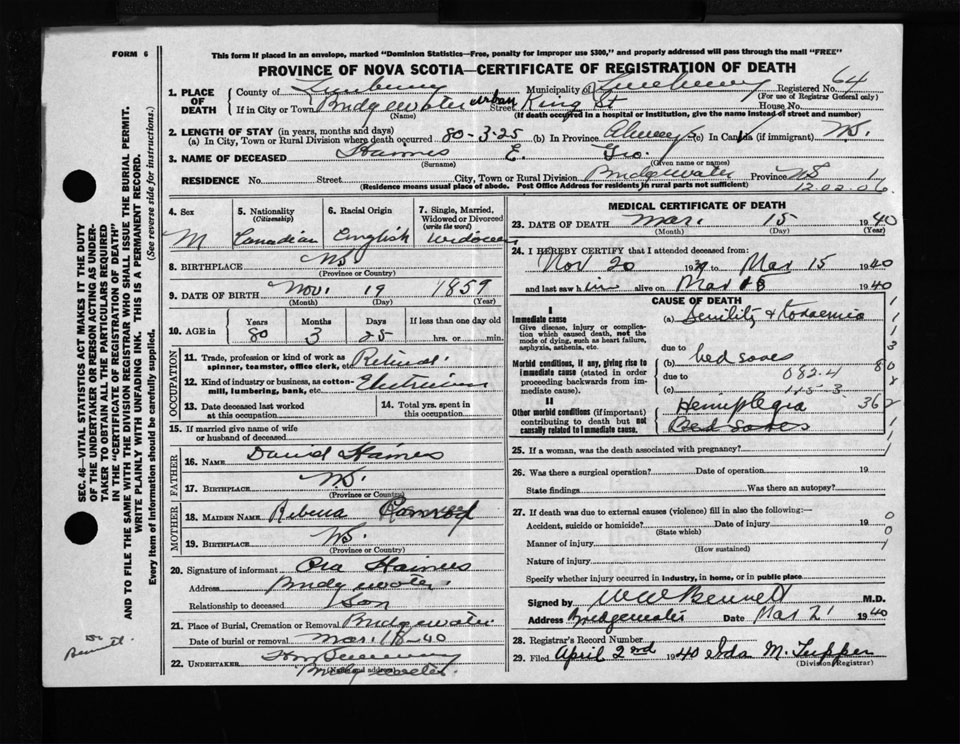 FORM 6
This form if placed in an envelope, marked "Dominion Statistics—Free, penalty for improper use $300," and properly addressed will pass through the mail "FREE"
PROVINCE OF NOVA SCOTIA—CERTIFICATE OF REGISTRATION OF DEATH
1. PLACE OF DEATH
County of Lunenburg Municipality of Lunenburg Registered No. 64
(For use of Registrar General only)
If in City or Town Bridgewater urban Street King St House No.
(Name) (If death occurred in a hospital or institution, give its name instead of street and number)
2. LENGTH OF STAY (in years, months and days)
(a) In City, Town or Rural Division where death occurred 80-3-25 (b) In Province Always (c) In Canada (if immigrant) NS.
3. NAME OF DECEASED Haines E. Geo.
(Surname) (Given name or names)
RESIDENCE No. Street City, Town or Rural Division Bridgewater Province NS 1
(Residence means usual place of abode. Post Office Address for residents in rural parts not sufficient) 12.02.06
4. Sex
M
5. Nationality
(Citizenship)
Canadian
6. Racial Origin
English
7. Single, Married, Widowed or Divorced
(write the word)
Widower
8. BIRTHPLACE NS
(Province or Country)
9. DATE OF BIRTH Nov. 19 1859
(Month) (Day) (Year)
10. AGE in
Years Months Days If less than one day old
80 3 25 hrs. or min.
OCCUPATION
11. Trade, profession or kind of work as spinner, teamster, office clerk, etc. Retired.
12. Kind of industry or business, as cotton-mill, lumbering, bank, etc. Electrician
13. Date deceased last worked at this occupation
14. Total yrs. spent in this occupation
15. If married give name of wife or husband of deceased
FATHER
16. NAME David Haines
17. BIRTHPLACE NS.
(Province or Country)
MOTHER
18. MAIDEN NAME
19. BIRTHPLACE NS.
(Province or Country)
20. Signature of informant Haines
Address Bridgewater.
Relationship to deceased Son
21. Place of Burial, Cremation or Removal Bridgewater
Date of burial or removal Mar. 18-40
22. UNDERTAKER
(Name and address)
Bridgewater
MEDICAL CERTIFICATE OF DEATH
23. DATE OF DEATH Mar. 15 1940
(Month) (Day) (Year)
24. I HEREBY CERTIFY that I attended deceased from:
Nov 20 1939 to Mar 15 1940
and last saw him alive on Mar 1940
CAUSE OF DEATH
I
Immediate cause
Give disease, injury or complication which caused death, not the mode of dying, such as heart failure, asphyxia, asthenia, etc.
(a) Senility & toxaemia
due to
Morbid conditions, if any, giving rise to immediate cause (stated in order proceeding backwards from immediate cause).
(b) bed sores
due to 082.4
(c) 45-3
II
Other morbid conditions (if important) contributing to death but not causally related to immediate cause.
Hemiplegia 362
Bed sores
25. If a woman, was the death associated with pregnancy?
26. Was there a surgical operation? Date of operation 19
State findings Was there an autopsy?
27. If death was due to external causes (violence) fill in also the following:—
Accident, suicide or homicide? Date of injury 19 0
(State which) 0
Manner of injury 1
(How sustained)
Nature of injury
Specify whether injury occurred in industry, in home, or in public place
Signed by W W Bennett M.D.
Address Bridgewater Date Mar 21 1940
28. Registrar's Record Number
29. Filed April 2nd 1940 Ida M. Tupper
(Division Registrar)
SEC. 46—VITAL STATISTICS ACT MAKES IT THE DUTY
OF THE UNDERTAKER OR PERSON ACTING AS UNDER-
TAKER TO OBTAIN ALL THE PARTICULARS REQUIRED
IN THE "CERTIFICATE OF REGISTRATION OF DEATH"
AND TO FILE THE SAME WITH THE DIVISION REGISTRAR WHO SHALL ISSUE THE BURIAL PERMIT.
WRITE PLAINLY WITH UNFADING INK. THIS IS A PERMANENT RECORD.
Every item of information should be carefully supplied. (See reverse side for instructions.)